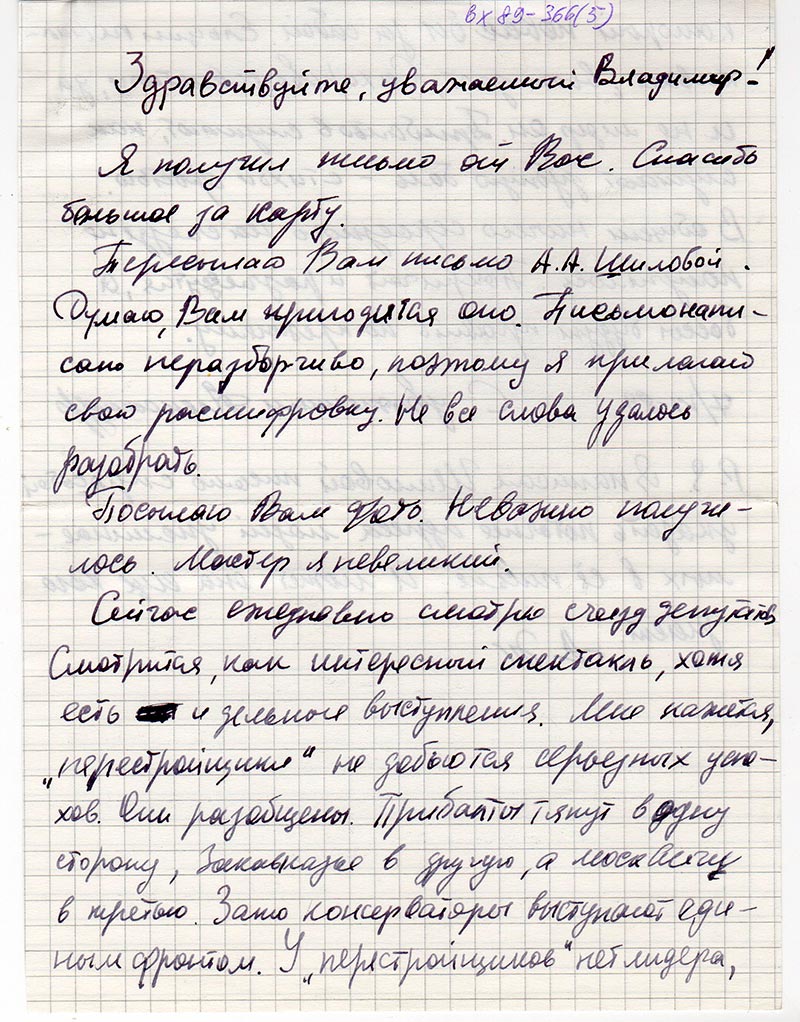 вх 89-366(5)
Здравствуйте, уважаемый Владимир!
Я получил письмо от Вас. Спасибо
большое за карту.
Пересылаю Вам письмо А.А. Шиловой.
Думаю, Вам пригодится оно. Письмо напи-
сано неразборчиво, поэтому я прилагаю
свою расшифровку. Не все слова удалось
разобрать.
Посылаю Вам фото. Неважно получи-
лось. Мастер я невеликий.
Сейчас ежедневно смотрю съезд депутатов
Смотрится, как интересный спектакль, хотя
есть и дельные выступления. Мне кажется,
„перестройщики“ не добьются серьезных успе-
хов. Они разобщены. Прибалты тянут в одну
сторону, Закавказье в другую, а москвичи
в третью. Зато консерваторы выступают еди-
ным фронтом. У „перестройщиков“ нет лидера,